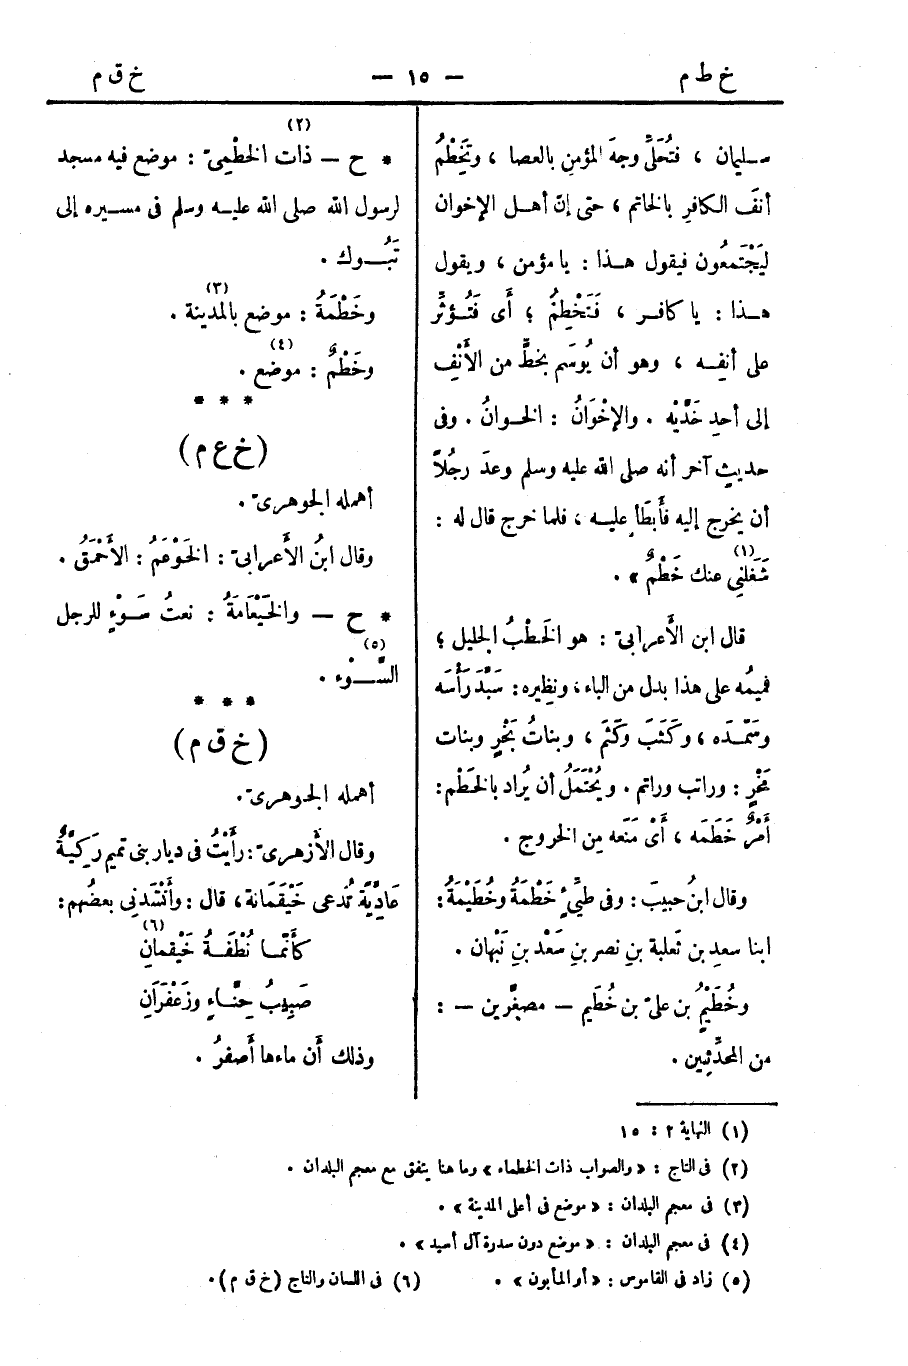 خ ط م — ١٥ — خ ق م
سليمان ، فتُحَلِّى وجهَ المؤمنِ بالعصا ، وتَخْطِمُ
أنفَ الكافرِ بالخاتم ، حتى إنّ أهل الإخوان
ليَجْتَمعُون فيقول هذا : يا مؤمن ، ويقول
هذا : يا كافر ، فَتَخْطِمُ ؛ أى فَتُؤثِّر
على أنفِه ، وهو أن يُوسَم بخطٍّ من الأَنْفِ
إلى أحدِ خَدَّيْه . والإخْوَانُ : الخوانُ . وفى
حديثٍ آخر أنه صلى الله عليه وسلم وعدَ رجُلاً
أن يخرج إليه فأَبطَأَ عليه ، فلما خرج قال له :
شَغَلنِى عنك خَطْمٌ (١) » .
قال ابن الأَعرابىّ : هو الخَطْبُ الجليل ؛
فميمُه على هذا بدل من الباء ، ونظيره : سَبَّدَ رَأْسَه
وسَمَّدَه ، وكَثَبَ وكَثَمَ ، وبناتُ بَخْرٍ وبنات
مَخْرٍ : وراتب وراتم . ويُحْتَمَلُ أن يُراد بالخَطْم :
أَمْرٌ خَطَمَه ، أَىْ مَنَعَه مِن الخروج .
وقال ابنُ حبيبَ : وفى طيِّئٍ خَطْمَةُ وخُطَيْمَةُ :
ابنا سعدِ بن ثَعلبة بنِ نصر بنِ سَعْد بنِ نَبْهان .
وخُطَيْمُ بن علىّ بن خُطَيم — مصغَّرين — :
من المحدِّثِين .
* ح — ذات الخطْمِىّ (٢) : موضع فيه مسجد
لرسول الله صلى الله عليه وسلم فى مسيره إلى
تَبُوك .
وخَطْمَةُ (٣) : موضع بالمدينة .
وخَطْمٌ (٤) : موضع .
* * *
( خ ع م )
أهمله الجوهرىّ .
وقال ابنُ الأَعرابىّ : الخَوْعَمُ : الأَحْمَقُ .
* ح — والخَيْعَامَةُ : نعتُ سَوْءٍ للرجل
السَّوْء (٥) .
* * *
( خ ق م )
أهمله الجوهرىّ .
وقال الأَزهرىّ : رأَيْتُ فى ديار بنى تميم رَكِيَّةً
عَادِيَّةً تُدعى خَيْقَمَانة ، قال : وأَنْشَدنِى بعضُهم :
كأَنَّما نُطْفَةُ خَيْقَمانِ (٦)
صَبِيبُ حِنَّاءٍ وزَعْفَرَانِ
وذلك أَن ماءها أَصفرُ .
(١) النهاية ٢ : ١٥
(٢) فى التاج : « والصواب ذات الخطماء » وما هنا يتفق مع معجم البلدان .
(٣) فى معجم البلدان : « موضع فى أعلى المدينة » .
(٤) فى معجم البلدان : « موضع دون سدرة آل أسيد » .
(٥) زاد فى القاموس : « أو المأبون » . (٦) فى اللسان والتاج ( خ ق م ) .